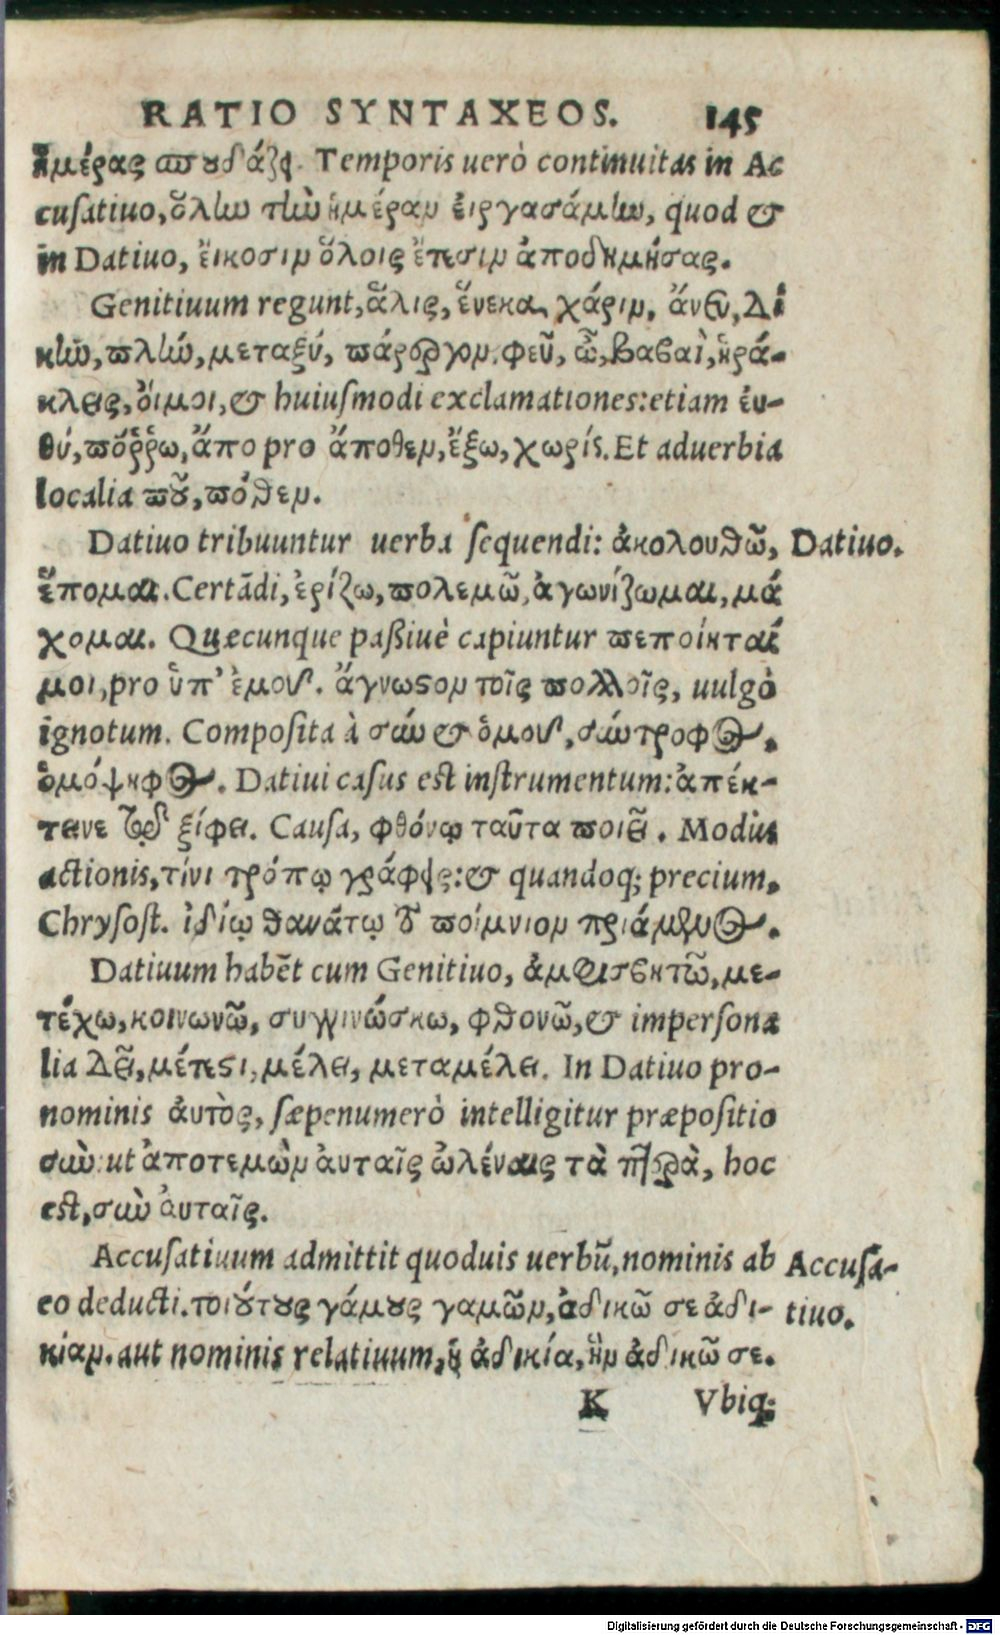 RATIO SYNTAXEOS. 145
ἡμέρας σπουδάζει. Temporis uerò continuitas in Ac
cusatiuo, ὅλην τὴν ἡμέραν ἐιργασάμην, quod &
in Datiuo, ἔικοσιν ὅλοις ἔτεσιν ἀποδημήσας.
Genitiuum regunt, ἅλις, ἕνεκα, χάριν, ἄνευ, Δί
κην, πλὴν, μεταξύ, πάρεργον, φεῦ, ὦ, βαβαὶ, ἡρά-
κλεις, ὄιμοι, & huiusmodi exclamationes: etiam ἐυ-
θύ, πόῤῥω, ἄπο pro ἄποθεν, ἔξω, χωρίς. Et aduerbia
localia ποῦ, πόθεν.
Datiuo tribuuntur uerba sequendi: ἀκολουθῶ, Datiuo.
ἕπομαι. Certãdi, ἐρίζω, πολεμῶ, ἀγωνίζωμαι, μά
χομαι. Quæcunque paßiuè capiuntur πεποίηταί
μοι, pro ὑπ' ἐμοῦ. ἄγνωστον τοῖς πολλοῖς, uulgò
ignotum. Composita à σύν & ὁμοῦ, σύντροφος,
ὁμόψηφος. Datiui casus est instrumentum: ἀπέκ-
τεινε τῷ ξίφει. Causa, φθόνῳ ταῦτα ποιεῖ. Modus
actionis, τίνι τρόπῳ γράφεις: & quandoq; precium,
Chrysost. ἰδίῳ θανάτῳ τὸ ποίμνιον πριάμενος.
Datiuum habẽt cum Genitiuo, ἀμφισβητῶ, με-
τέχω, κοινωνῶ, συγγινώσκω, φθονῶ, & impersona
lia Δεῖ, μέτεστι, μέλει, μεταμέλει. In Datiuo pro-
nominis ἀυτὸς, sæpenumerò intelligitur præpositio
σὺν: ut ἀποτεμὼν ἀυταῖς ὠλέναις τὰ πτερὰ, hoc
est, σὺν ἀυταῖς.
Accusatiuum admittit quoduis uerbũ, nominis ab Accusa-
eo deducti. τοιούτους γάμους γαμῶν, ἀδικῶ σε ἀδι- tiuo.
κίαν. aut nominis relatiuum, ἡ ἀδικία, ἣν ἀδικῶ σε.
K Vbiq;
Digitalisierung gefördert durch die Deutsche Forschungsgemeinschaft - DFG